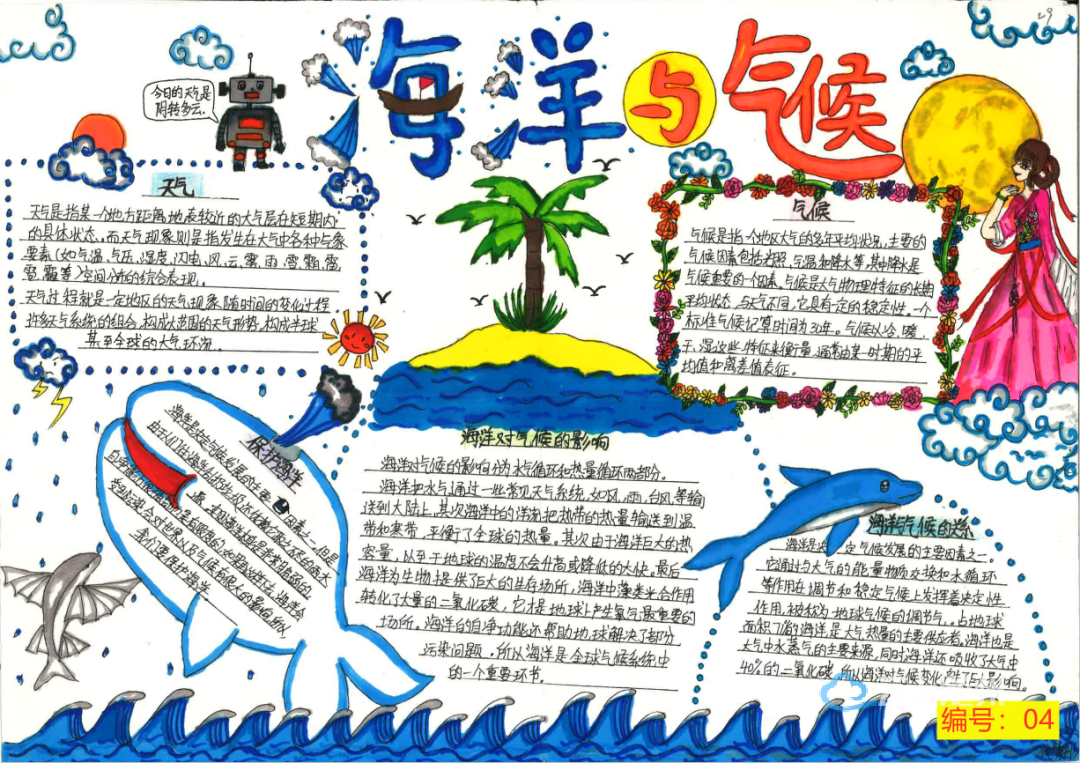 29
海洋与气候
今日的天气是
阴转多云.
天气
天气是指某一个地方距离地表较近的大气层在短期内
的具体状态。而天气现象则是指发生在大气中各种气象
要素(如气温、气压、湿度、闪电、风、云、雾、雨、雪、霜、雷、
雹、霾等)空间分布的综合表现。
天气过程就是一定地区的天气现象随时间的变化过程
许多天气系统的组合,构成大范围的天气形势,构成半球
甚至全球的大气环流。
气候
气候是指一个地区大气的多年平均状况,主要的
气候因素包括光照、气温和降水等,其中降水是
气候重要的一个因素,气候是大气物理特征的长期
平均状态,与天气不同,它具有一定的稳定性。一个
标准气候纪算时间为30年。气候以冷、暖、
干、湿这些特征来衡量,通常由某一时期的平
均值和离差值表征。
保护海洋
海洋是决定气候发展的主要因素之一,但是
我们要保护海洋
海洋对气候的影响
海洋对气候的影响分为水气循环和热量循环两部分。
海洋把水与通过一些常见天气系统,如风、雨、台风等输
送到大陆上,其次海洋中的洋流把热带的热量输送到温
带和寒带,平衡了全球的热量。其次由于海洋巨大的热
容量,以至于地球的温度不会升高或降低的太快。最后
海洋为生物提供了巨大的生存场所,海洋中藻类光合作用
转化了大量的二氧化碳,它才是地球上产生氧气最重要的
场所。海洋的自净功能还帮助地球解决了部分
污染问题,所以海洋是全球气候系统中
的一个重要环节。
海洋气候的关系
海洋是决定气候发展的主要因素之一
它通过与大气的能量物质交换和水循环
等作用在调节和稳定气候上发挥着决定性
作用,被称为地球气候的调节气,占地球
面积71%的海洋是大气热量的主要供应者,海洋也是
大气中水蒸气的主要来源,同时海洋还吸收了大气中
40%的二氧化碳,所以海洋对气候变化产生巨大影响。
编号:04